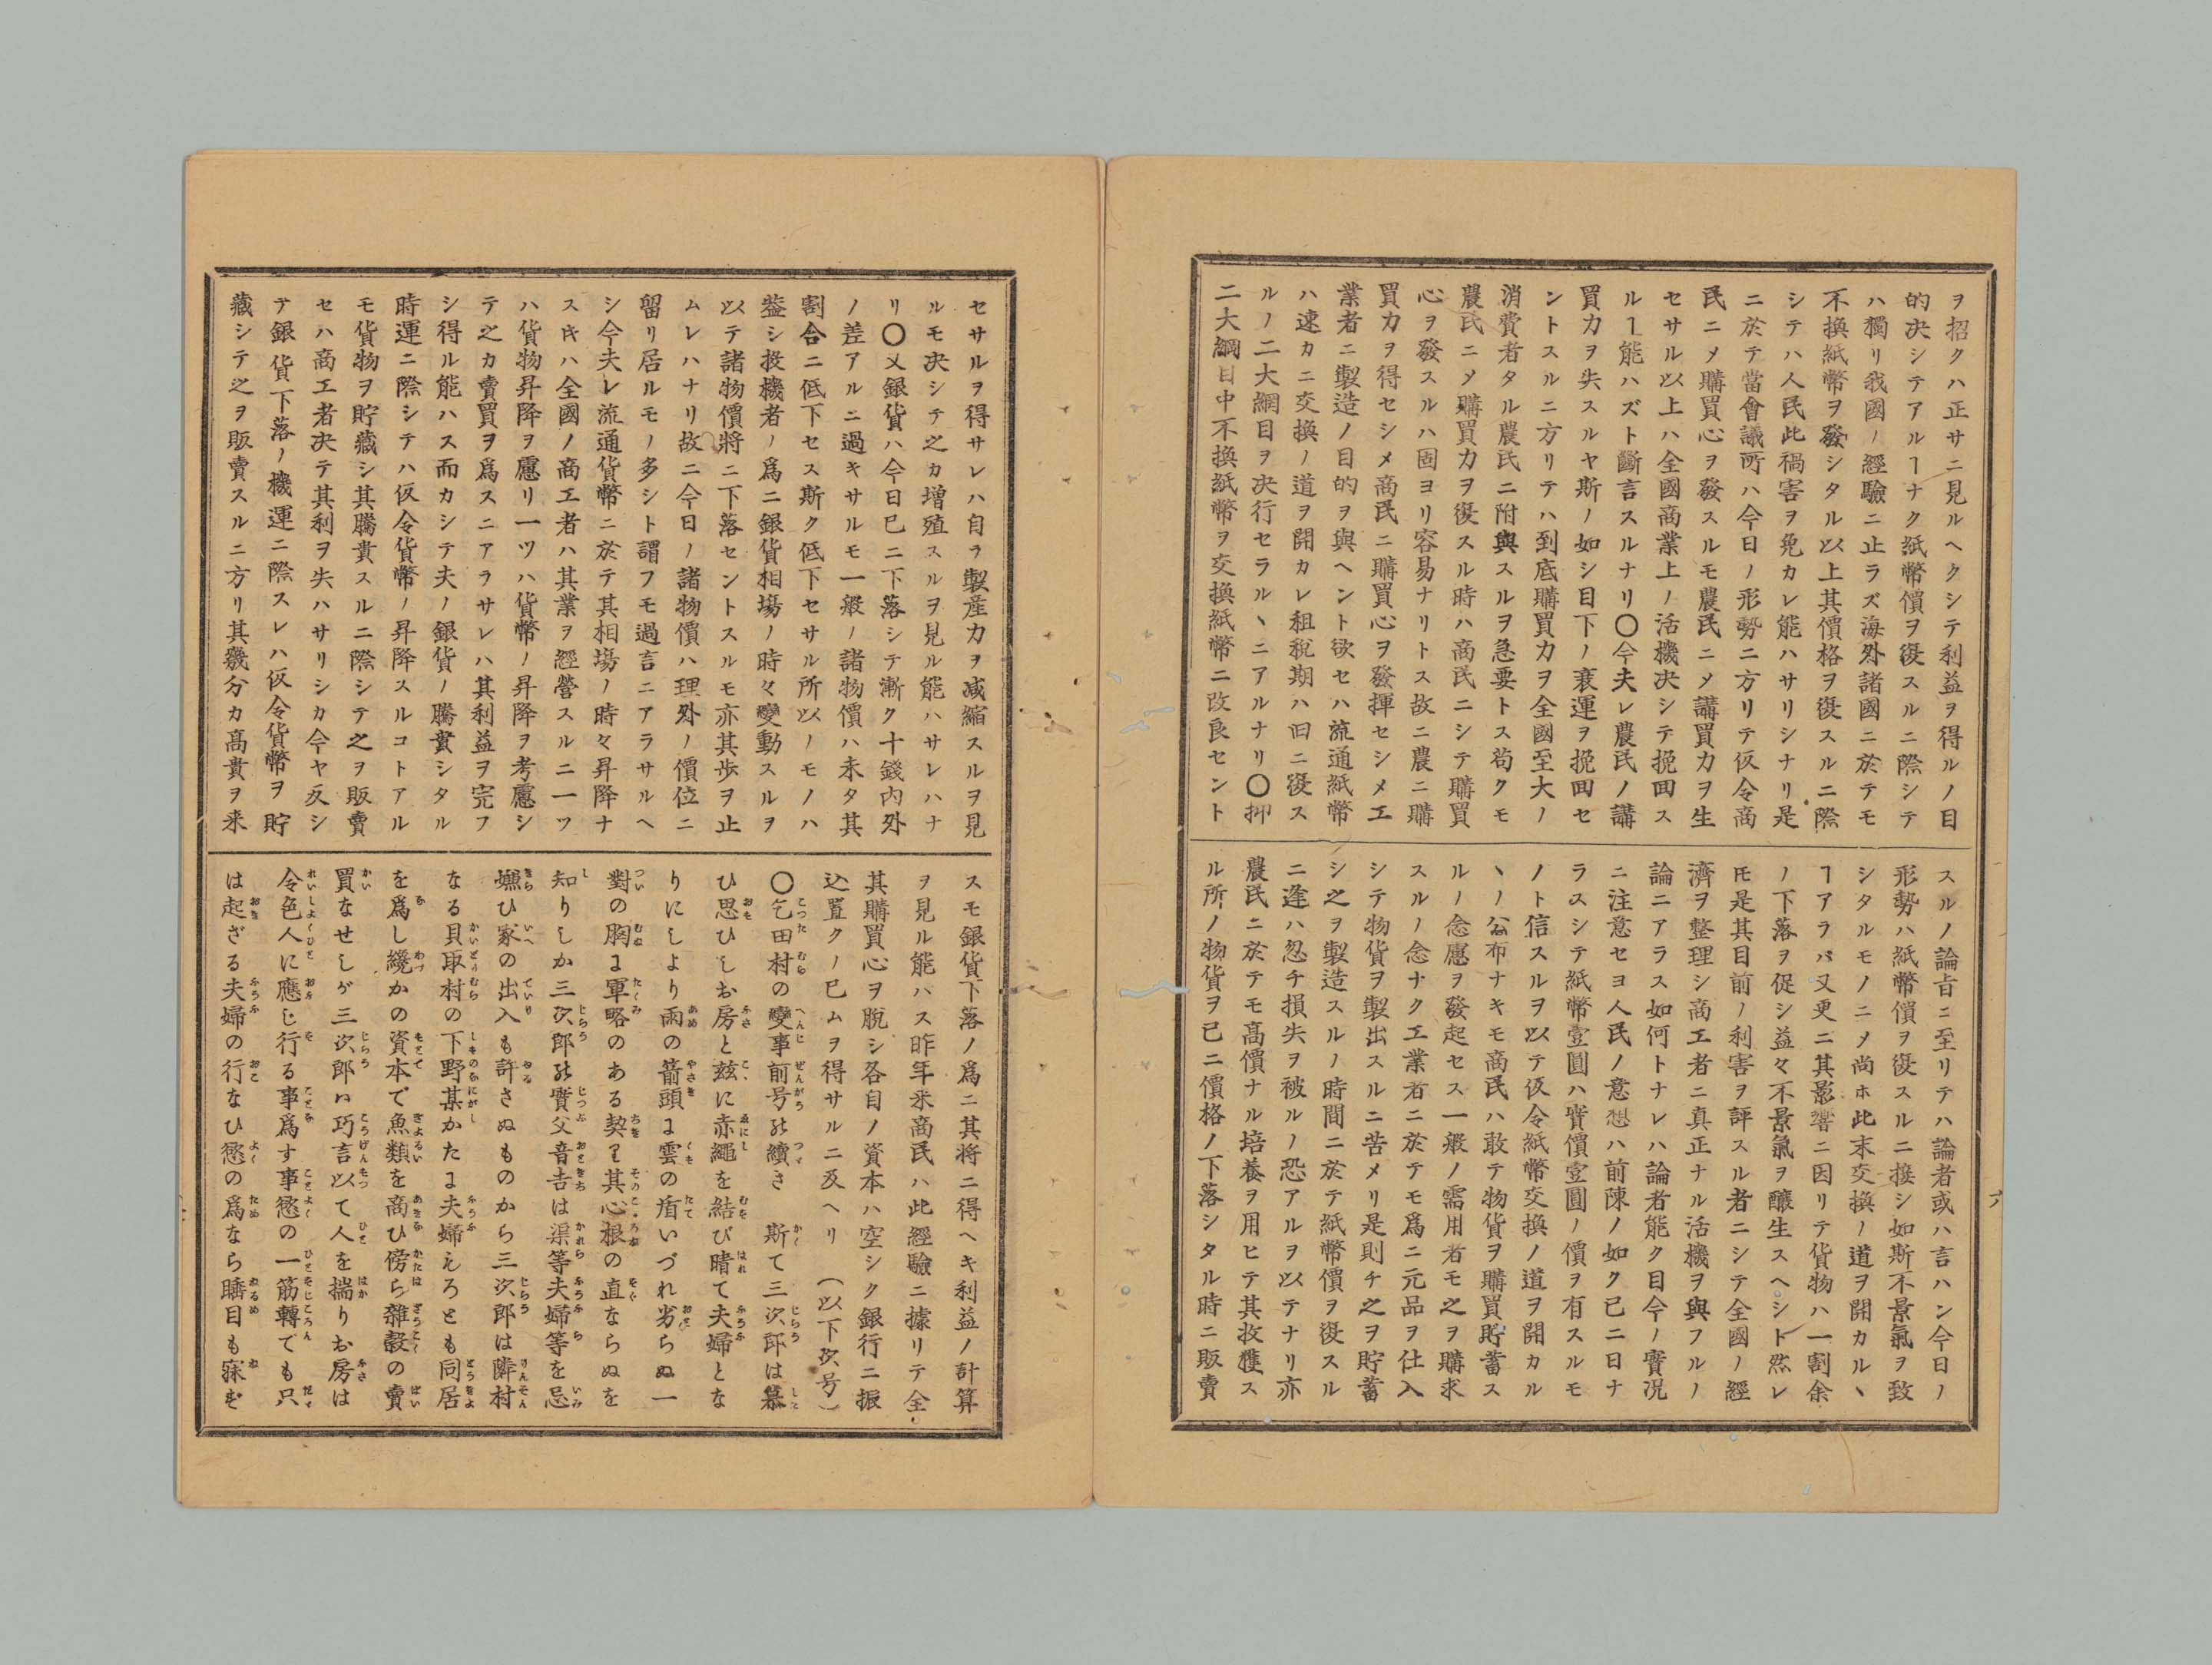 ヲ招クハ正サニ見ルヘクシテ利益ヲ得ルノ目
的决シテアルヿナク紙幣價ヲ復スルニ際シテ
ハ獨リ我國ノ經驗ニ止ラズ海外諸國ニ於テモ
不換紙幣ヲ發シタル以上其價格ヲ復スルニ際
シテハ人民此禍害ヲ免カレ能ハサリシナリ是
ニ於テ當會議所ハ今日ノ形勢ニ方リテ仮令商
民ニメ購買心ヲ發スルモ農民ニメ講買力ヲ生
セサル以上ハ全國商業上ノ活機决シテ挽回ス
ルヿ能ハズト斷言スルナリ〇今夫レ農民ノ講
買力ヲ失スルヤ斯ノ如シ目下ノ衰運ヲ挽回セ
ントスルニ方リテハ到底購買力ヲ全國至大ノ
消費者タル農民ニ附與スルヲ急要トス苟クモ
農民ニメ購買力ヲ復スル時ハ商民ニシテ購買
心ヲ發スルハ固ヨリ容易ナリトス故ニ農ニ購
買力ヲ得セシメ商民ニ購買心ヲ發揮セシメ工
業者ニ製造ノ目的ヲ與ヘント欲セハ流通紙幣
ハ速カニ交換ノ道ヲ開カレ租税期ハ旧ニ復ス
ルノ二大網目ヲ决行セラルヽニアルナリ〇抑
二大綱目中不換紙幣ヲ交換紙幣ニ改良セント
スルノ論旨ニ至リテハ論者或ハ言ハン今日ノ
形勢ハ紙幣價ヲ復スルニ接シ如斯不景氣ヲ致
シタルモノニメ尚ホ此末交換ノ道ヲ開カルヽ
ヿアラバ又更ニ其影響ニ因リテ貨物ハ一割余
ノ下落ヲ促シ益々不景氣ヲ釀生スヘシト然レ
𪜈是其目前ノ利害ヲ評スル者ニシテ全國ノ經
濟ヲ整理シ商工者ニ真正ナル活機ヲ與フルノ
論ニアラス如何トナレハ論者能ク目今ノ實况
ニ注意セヨ人民ノ意想ハ前陳ノ如ク已ニ日ナ
ラスシテ紙幣壹圓ハ實價壹圓ノ價ヲ有スルモ
ノト信スルヲ以テ仮令紙幣交換ノ道ヲ開カル
ヽノ公布ナキモ商民ハ敢テ物貨ヲ購買貯蓄ス
ルノ念慮ヲ發起セス一般ノ需用者モ之ヲ購求
スルノ念ナク工業者ニ於テモ爲ニ元品ヲ仕入
シテ物貨ヲ製出スルニ苦メリ是則チ之ヲ貯蓄
シ之ヲ製造スルノ時間ニ於テ紙幣價ヲ復スル
ニ逢ハ忽チ損失ヲ被ルノ恐アルヲ以テナリ亦
農民ニ於テモ高價ナル培養ヲ用ヒテ其收獲ス
ル所ノ物貨ヲ已ニ價格ノ下落シタル時ニ販賣
六
セサルヲ得サレハ自ラ製産力ヲ减縮スルヲ見
ルモ决シテ之カ増殖スルヲ見ル能ハサレハナ
リ〇又銀貨ハ今日已ニ下落シテ漸ク十錢内外
ノ差アルニ過キサルモ一般ノ諸物價ハ未タ其
割合ニ低下セス斯ク低下セサル所以ノモノハ
葢シ投機者ノ爲ニ銀貨相塲ノ時々變動スルヲ
以テ諸物價將ニ下落セントスルモ亦其歩ヲ止
ムレハナリ故ニ今日ノ諸物價ハ理外ノ價位ニ
留リ居ルモノ多シト謂フモ過言ニアラサルヘ
シ今夫レ流通貨幣ニ於テ其相塲ノ時々昇降ナ
スキハ全國ノ商工者ハ其業ヲ經營スルニ一ツ
ハ貨物昇降ヲ慮リ一ツハ貨幣ノ昇降ヲ考慮シ
テ之カ賣買ヲ爲スニアラサレハ其利益ヲ完フ
シ得ル能ハス而カシテ夫ノ銀貨ノ騰貴シタル
時運ニ際シテハ仮令貨幣ノ昇降スルコトアル
モ貨物ヲ貯藏シ其騰貴スルニ際シテ之ヲ販賣
セハ商工者决テ其利ヲ失ハサリシカ今ヤ反シ
テ銀貨下落ノ機運ニ際スレハ仮令貨幣ヲ貯
藏シテ之ヲ販賣スルニ方リ其幾分カ高貴ヲ来
スモ銀貨下落ノ爲ニ其将ニ得ヘキ利益ノ計算
ヲ見ル能ハス昨年来商民ハ此經驗ニ據リテ全
其購買心ヲ脱シ各自ノ資本ハ空シク銀行ニ振
込置クノ已ムヲ得サルニ及ヘリ (以下次号)
〇乞田村の變事前号の續き 斯て三次郎は慕
ひ思ひしお房と玆に赤繩を結び晴て夫婦とな
りにしより雨の箭頭に雲の盾いづれ劣らぬ一
對の胸に軍略のある契りて其心根の直ならぬを
知りしか三次郎の實父音吉は渠等夫婦等を忌
嫌ひ家の出入も許さぬものから三次郎は隣村
なる貝取村の下野某かたに夫婦もろとも同居
を爲し纔かの資本で魚類を商ひ傍ら雜穀の賣
買なせしが三次郎ハ巧言以て人を揣りお房は
令色人に應じ行る事爲す事慾の一筋轉でも只
は起ざる夫婦の行なひ慾の爲なら睹目も寐ず